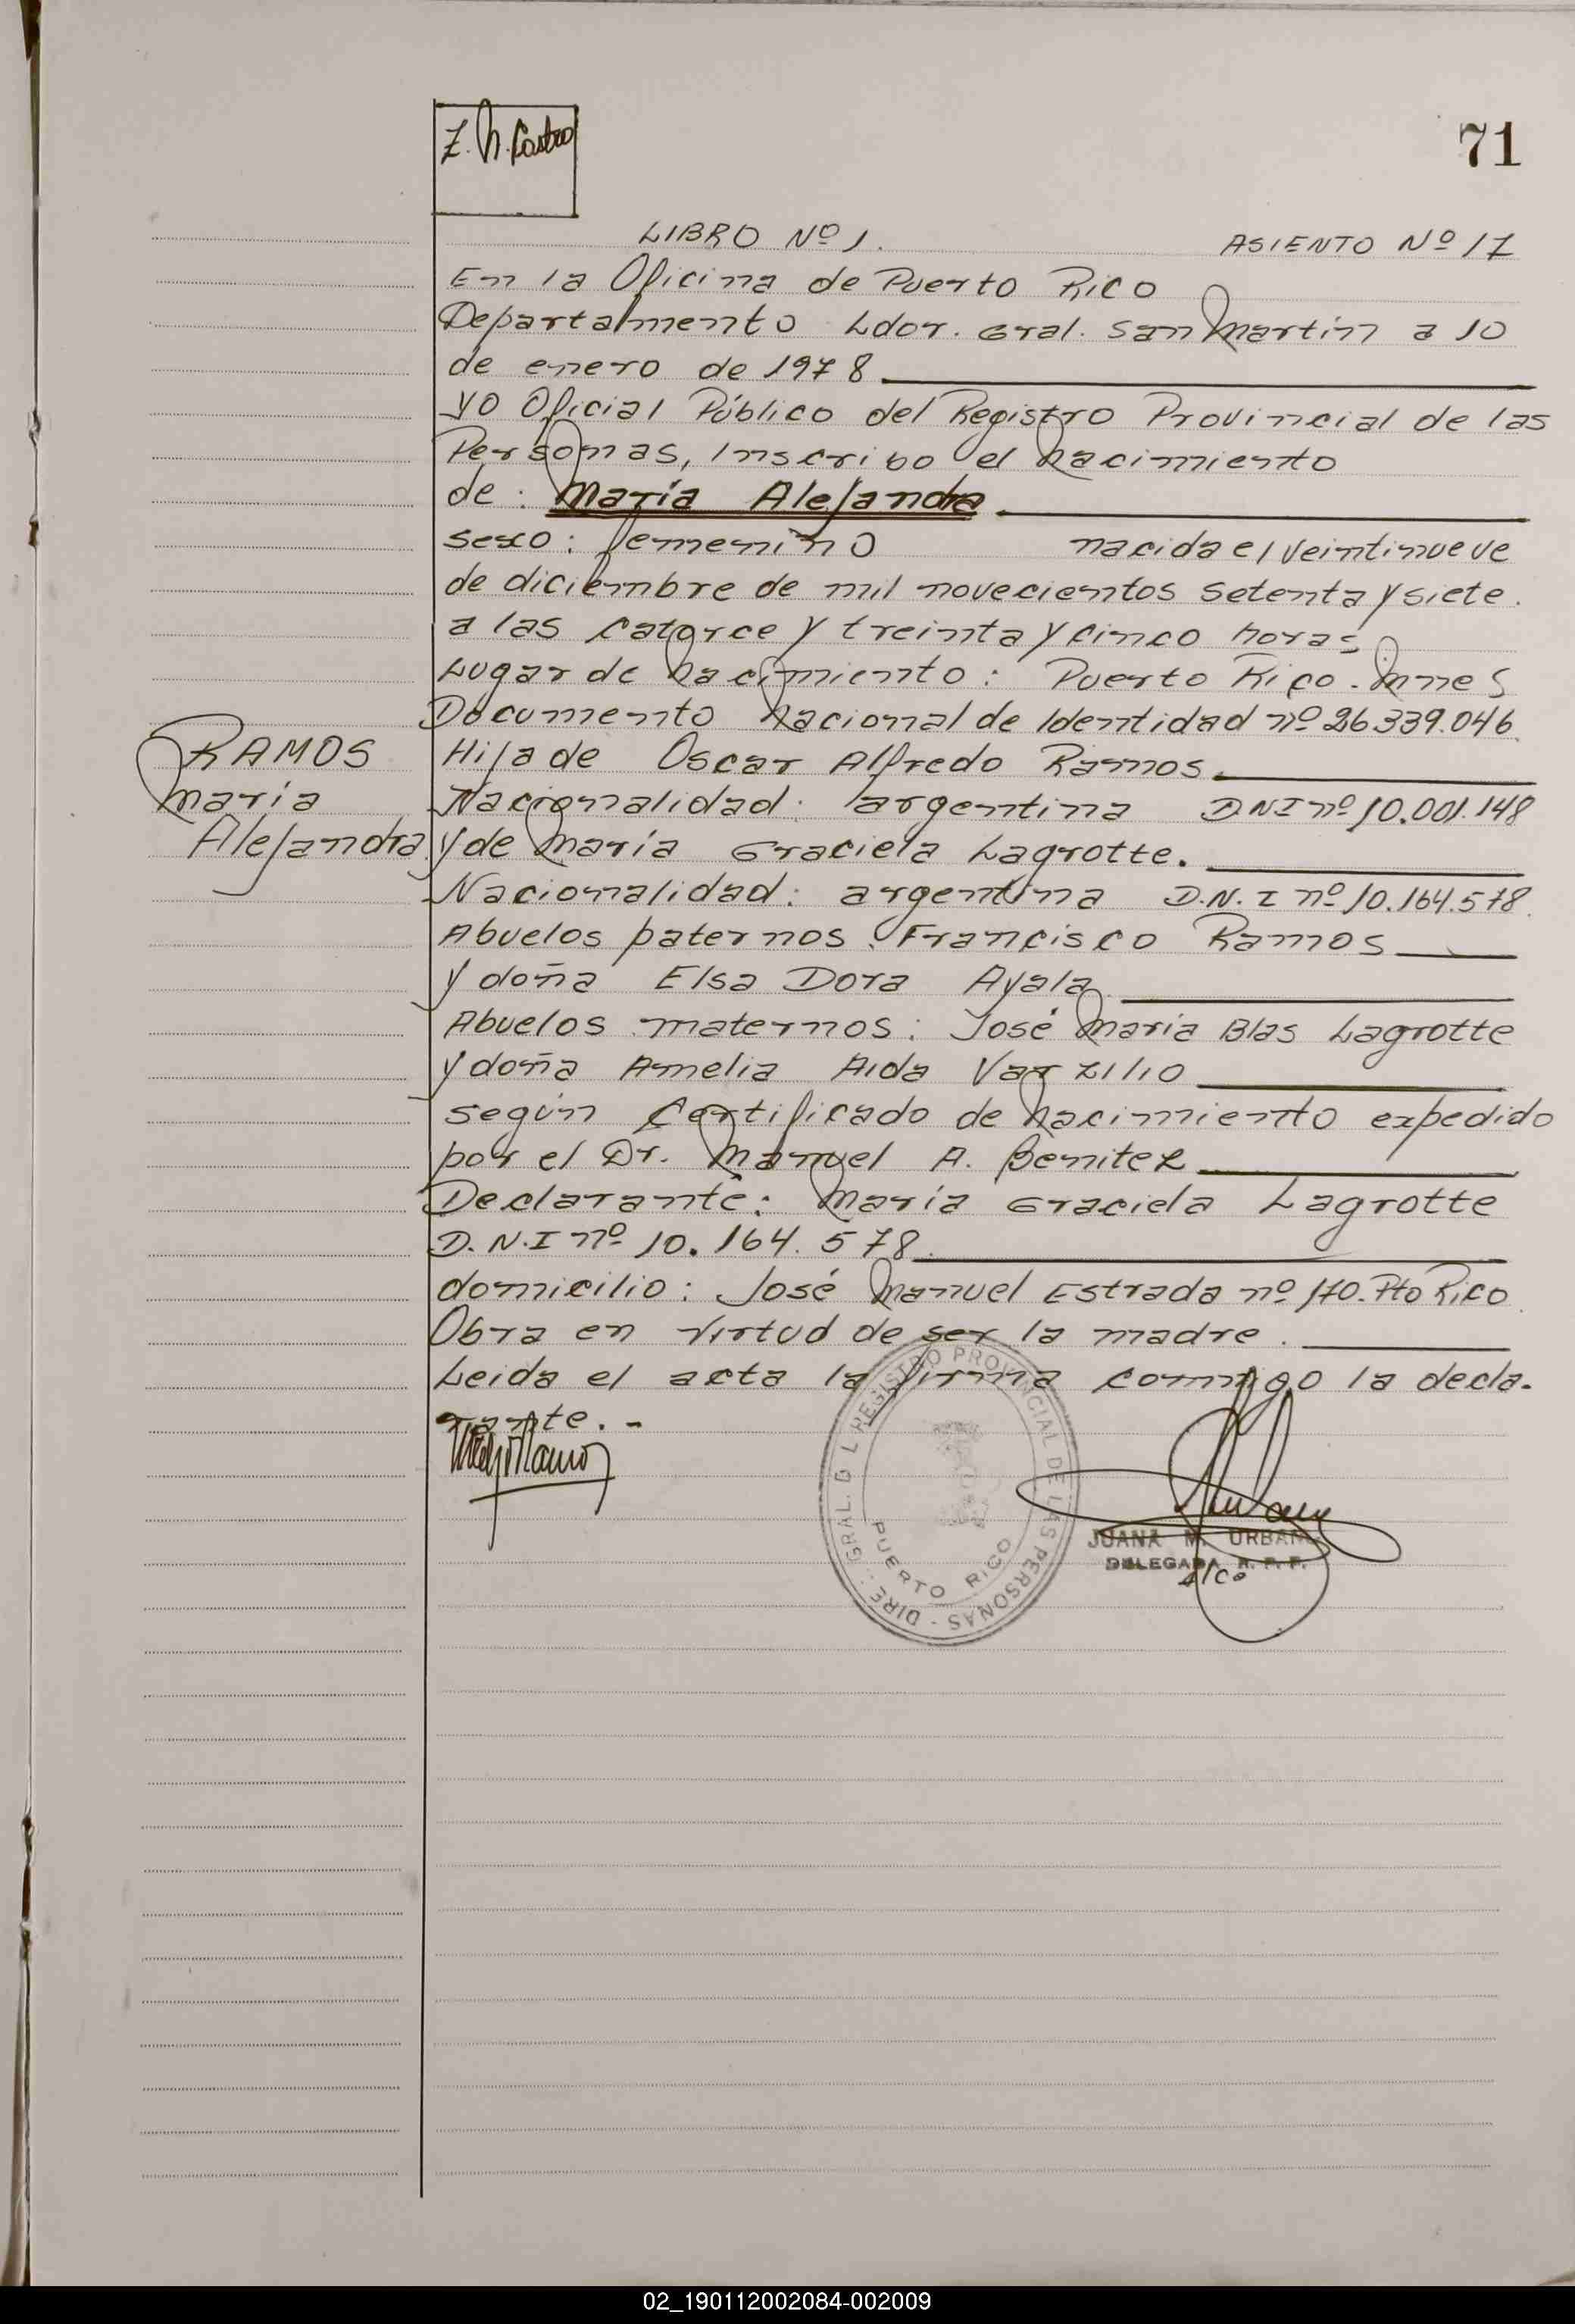 Z. N. Castro
71
LIBRO Nº 1. ASIENTO Nº 17
En la Oficina de Puerto Rico
Departamento Ldor. Gral. San Martín a 10
de enero de 1978
yo Oficial Público del Registro Provincial de las
Personas, Inscribo el Nacimiento
de: María Alejandra
sexo: femenino nacida el veintinueve
de diciembre de mil novecientos setenta y siete.
a las catorce y treinta y cinco horas
Lugar de Nacimiento: Puerto Rico. Mnes
Documento Nacional de Identidad nº 26.339.046
RAMOS
María
Alejandra
Hija de Oscar Alfredo Ramos.
Nacionalidad: argentina D.N.I nº 10.001.148
y de María Graciela Lagrotte.
Nacionalidad: argentina D.N.I nº 10.164.578.
Abuelos paternos: Francisco Ramos
y doña Elsa Dora Ayala.
Abuelos maternos: José María Blas Lagrotte
y doña Amelia Aida Varzilio
según Certificado de Nacimiento expedido
por el Dr. Manuel A. Benitez
Declarante: María Graciela Lagrotte
D.N.I nº 10.164.578.
domicilio: José Manuel Estrada nº 170. Pto Rico.
Obra en virtud de ser la madre.
Leida el acta la firma conmigo la decla-
rante.-
DIRE. GRAL. DEL REGISTRO PROVINCIAL DE LAS PERSONAS -
PUERTO RICO
JUANA M. URBAN
DELEGADA R. P. P.
02_190112002084-002009